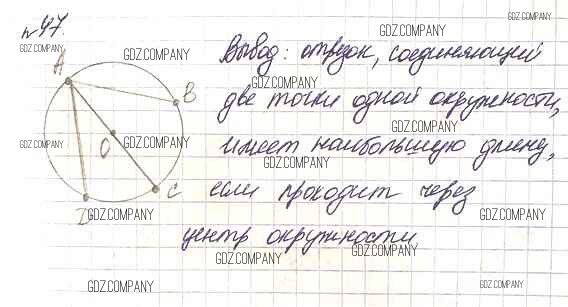 №47.
GDZ.COMPANY
GDZ.COMPANY
GDZ.COMPANY
GDZ.COMPANY
Вывод: отрезок, соединяющий
A
GDZ.COMPANY
GDZ.COMPANY
B
две точки одной окружности,
GDZ.COMPANY
O
GDZ.COMPANY
GDZ.COMPANY
имеет наибольшую длину,
GDZ.COMPANY
C
если проходит через
D
GDZ.COMPANY
GDZ.COMPANY
центр окружности.
GDZ.COMPANY
GDZ.COMPANY
GDZ.COMPANY
GDZ.COMPANY